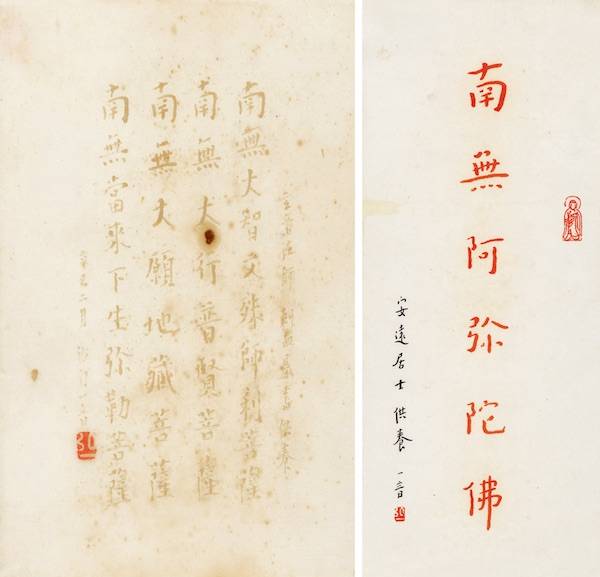 法師 書供養
南無大智文殊師利菩薩
南無大行普賢菩薩
南無大願地藏菩薩
南無當來下生弥勒菩薩
二月
南無阿弥陀佛
安遠居士供養 一音